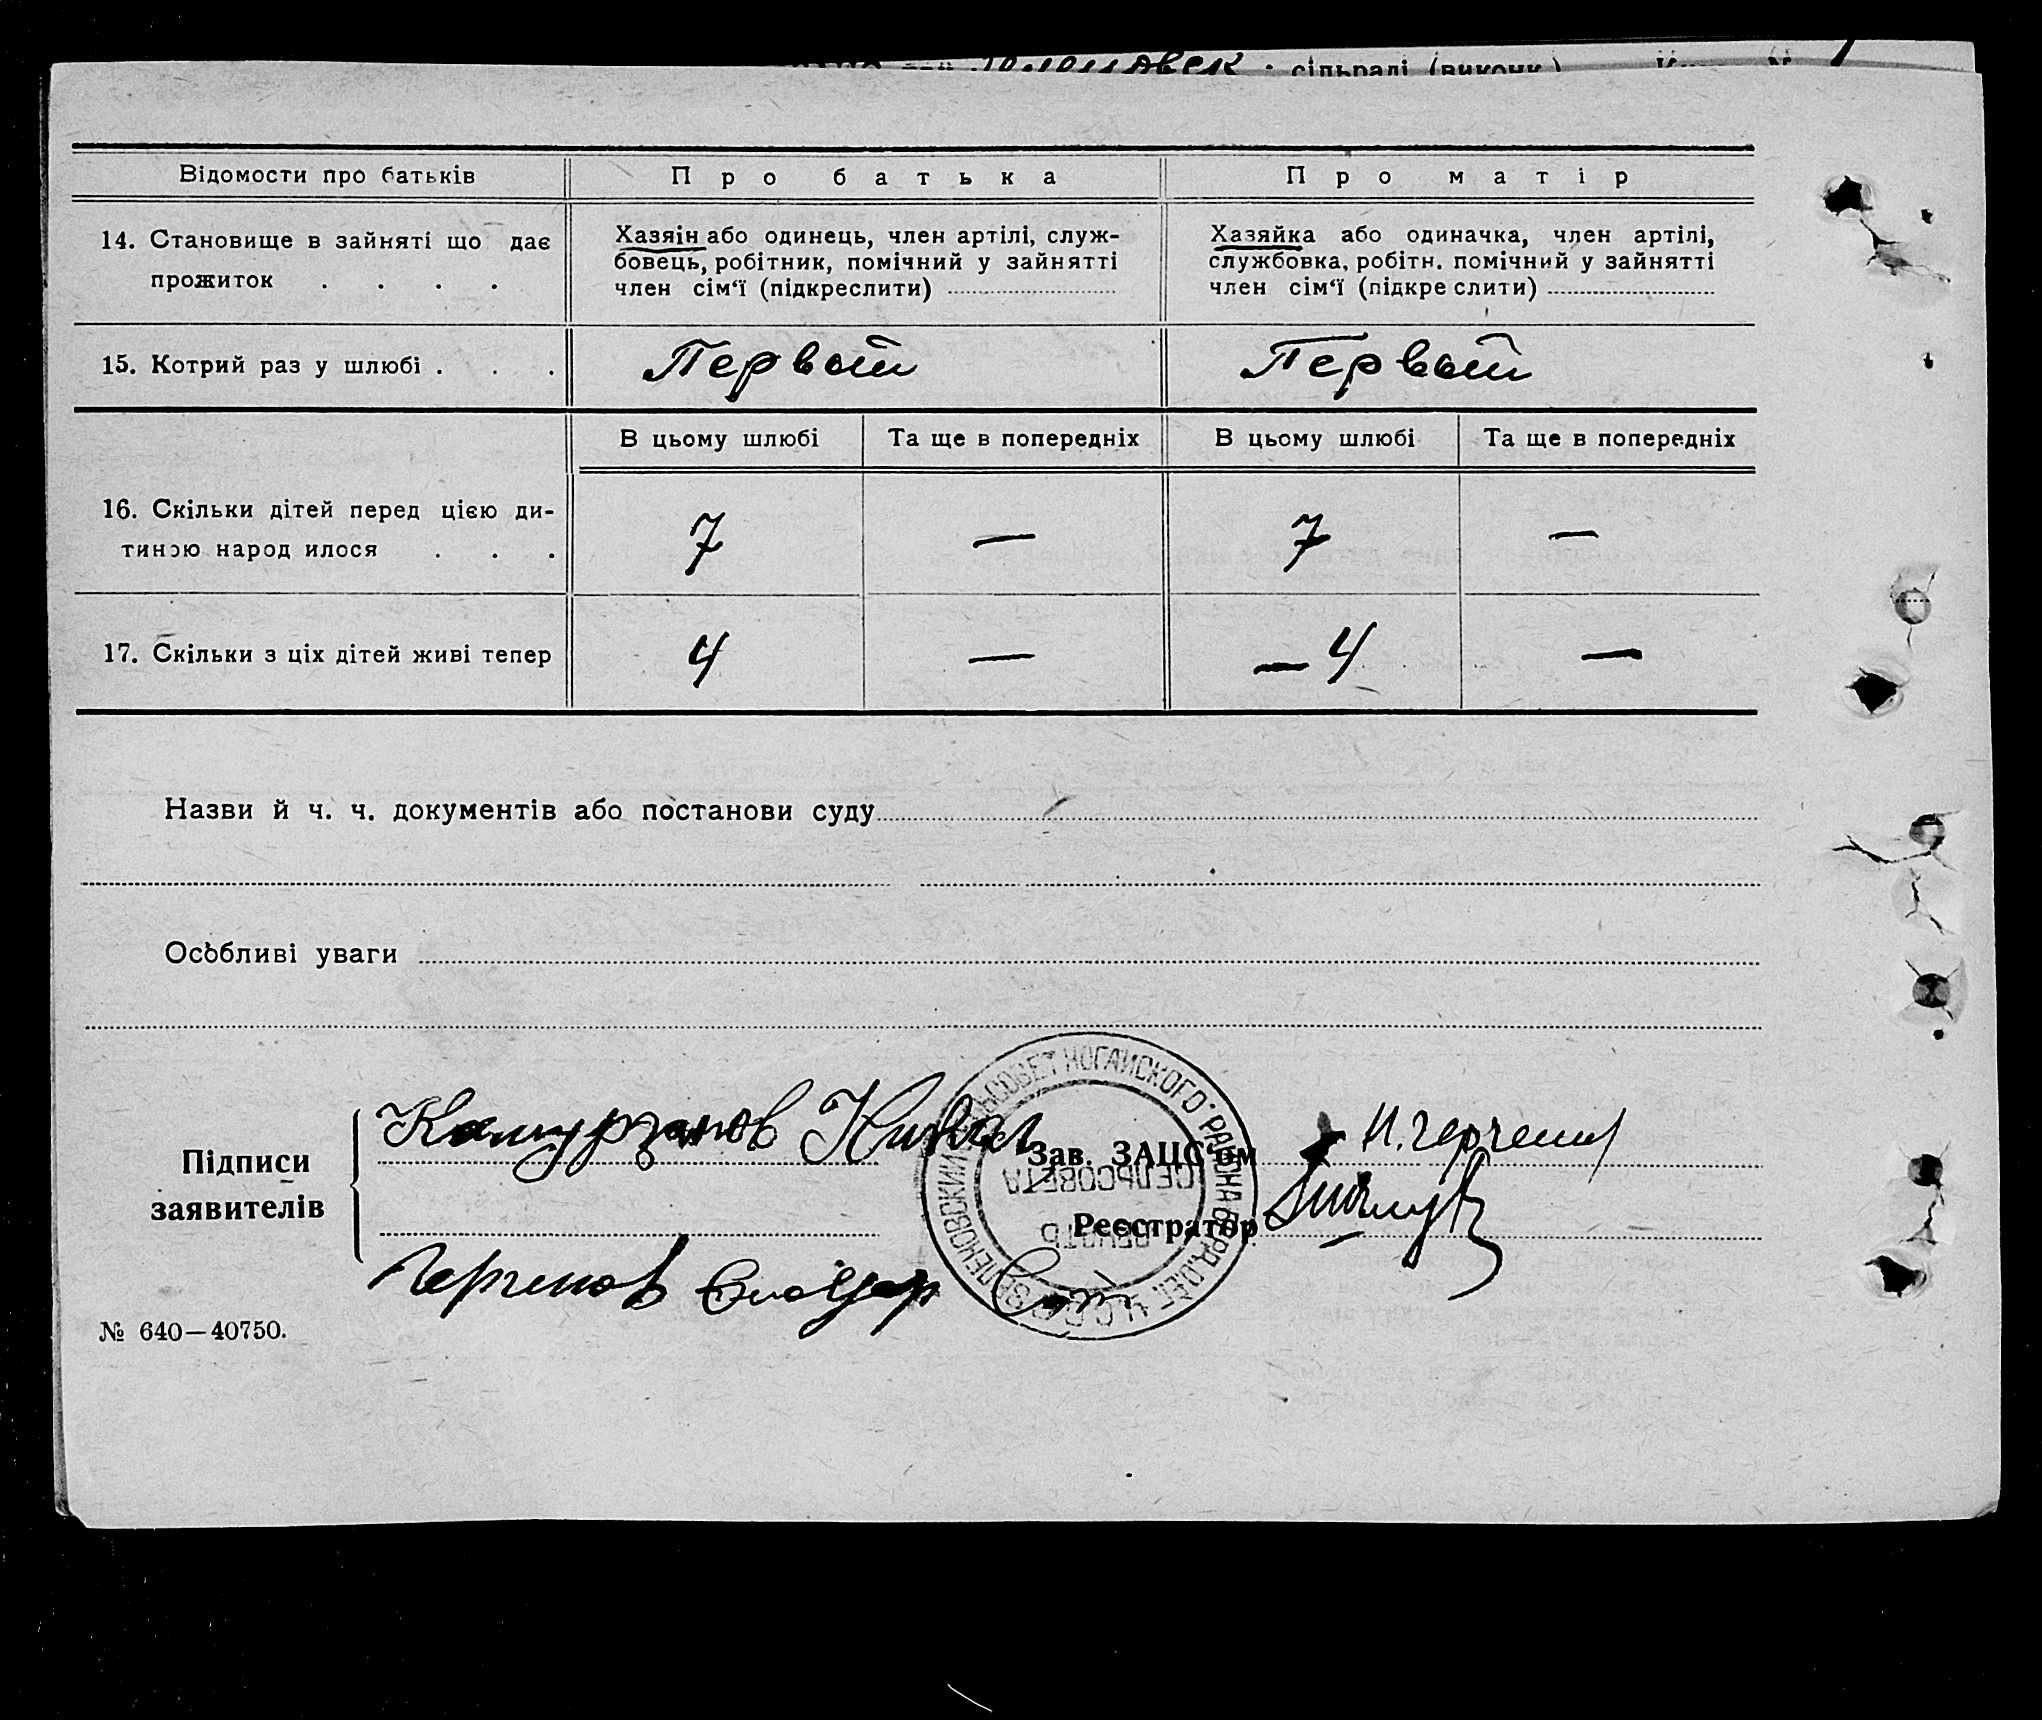 сільраді (виконк.)
Відомости про батьків Про батька Про матір
14. Становище в зайняті що дає прожиток . . . .
Хазяін або одинець, член артілі, служ-
бовець, робітник, помічний у зайнятті
член сім‘ї (підкреслити)
Хазяйка або одиначка, член артілі,
службовка, робітн. помічний у зайнятті
член сім‘ї (підкреслити)
15. Котрий раз у шлюбі . . . Первый Первый
В цьому шлюбі Та ще в попередніх В цьому шлюбі Та ще в попередніх
16. Скільки дітей перед цією ди-
тиною народилося . . . 7 — 7 —
17. Скільки з ціх дітей живі тепер 4 — — 4 —
Назви й ч. ч. документів або постанови суду
Особливі уваги
Підписи
заявителів
Зав. ЗАЦС‘ом
Реєстратор
СЕЛЬСОВЕТ НОГАЙСКОГО РАЙОНА
СЕЛЬСОВЕТА
№ 640—40750.